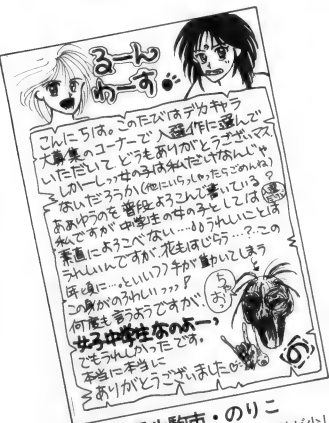 るーん
わーす
こんにちは。このたびはデカキャラ
大募集のコーナーで入選作に選んで
いただいて、どうもありがとうございマス
しかーしっ女の子は私だけなんじゃ
ないだろうか(他にいらっしゃったらごめんね)
ああゆうのを普段よろこんで書いている?
私ですが中学生の女の子としては
素直によろこべない……うれしいことは
うれしいんですが、花もはじらう…?この
年頃に…といいつつ手が動いてしまう
この身がのろわしいっっ?
何度も言うようですが、
女子中学生なのよーっ
でもうれしかったです。
本当に本当に
ありがとうございました
ちゃお
駒市・のりこ